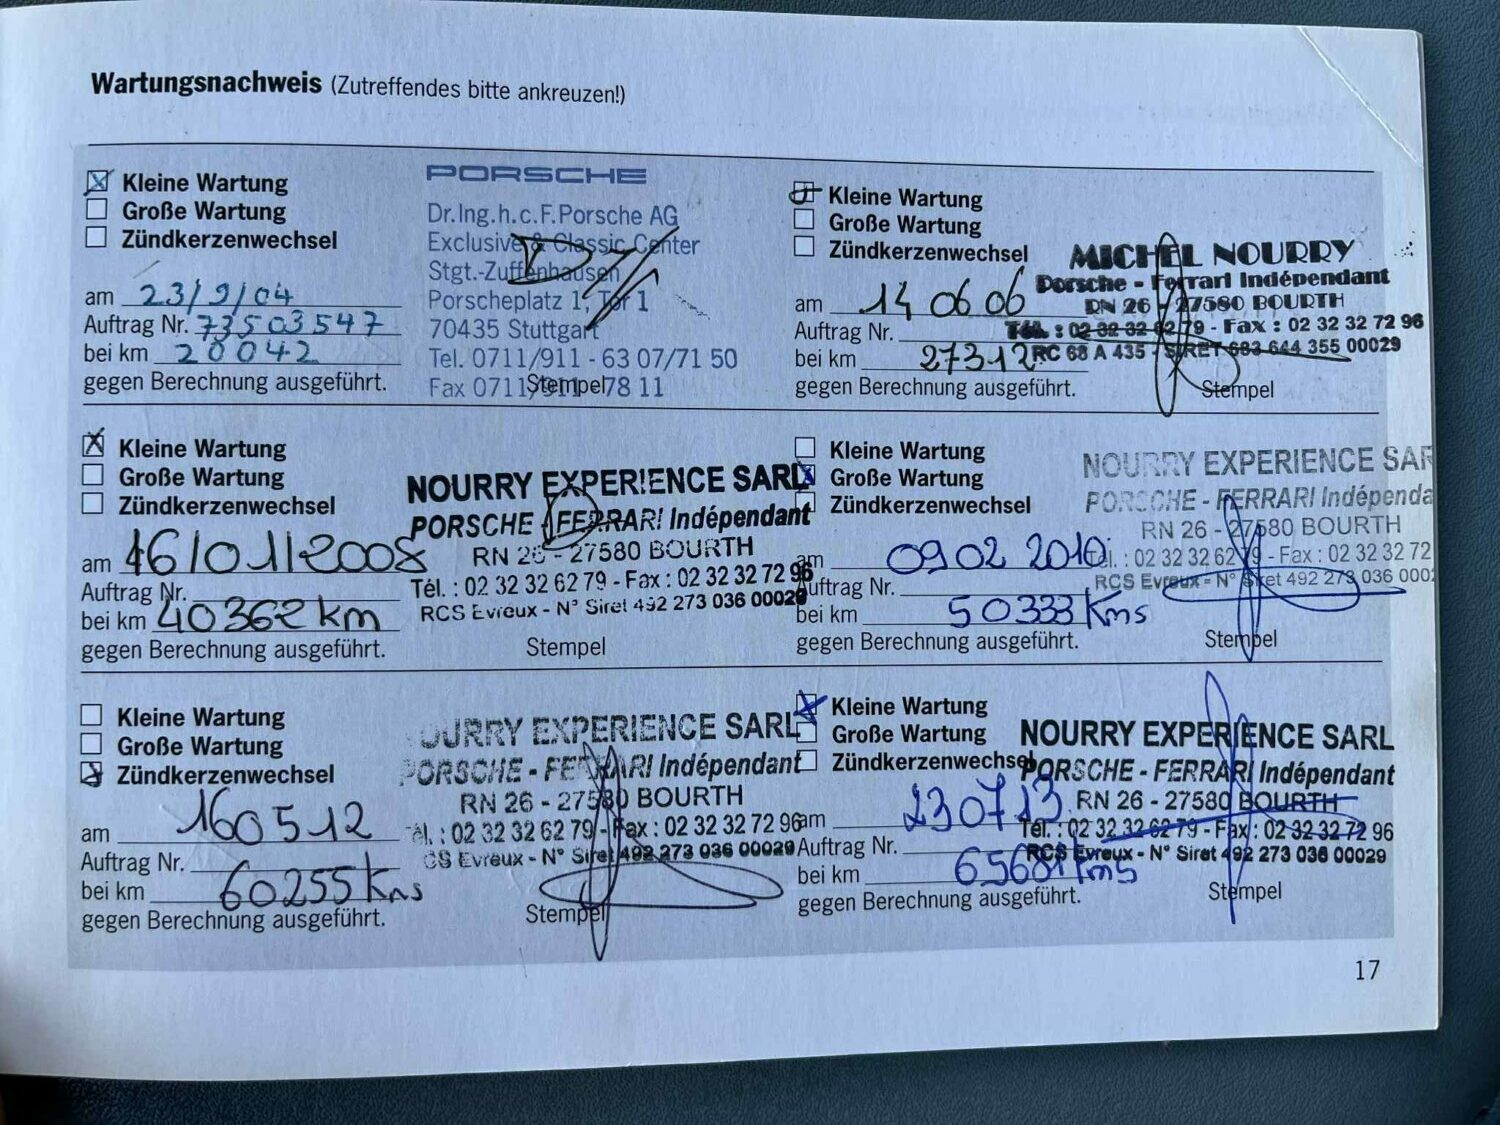 Wartungsnachweis (Zutreffendes bitte ankreuzen!)
Kleine Wartung
Große Wartung
Zündkerzenwechsel
am 23/9/04
Auftrag Nr. 73503547
bei km 20042
gegen Berechnung ausgeführt.
PORSCHE
Dr.Ing.h.c.F.Porsche AG
Exclusive & Classic Center
Stgt.-Zuffenhausen
Porscheplatz 1, Tor 1
70435 Stuttgart
Tel. 0711/911 - 63 07/71 50
Fax 0711/911 - 78 11
Stempel
Kleine Wartung
Große Wartung
Zündkerzenwechsel
am 14 06 06
Auftrag Nr.
bei km 27312
gegen Berechnung ausgeführt.
MICHEL NOURRY
Porsche - Ferrari Indépendant
RN 26 - 27580 BOURTH
Tél. : 02 32 32 62 79 - Fax : 02 32 32 72 96
RC 68 A 435 - SIRET 683 644 355 00029
Stempel
Kleine Wartung
Große Wartung
Zündkerzenwechsel
am 16/01/2008
Auftrag Nr.
bei km 40362 km
gegen Berechnung ausgeführt.
NOURRY EXPERIENCE SARL
PORSCHE - FERRARI Indépendant
RN 26 - 27580 BOURTH
Tél. : 02 32 32 62 79 - Fax : 02 32 32 72 96
RCS Evreux - N° Siret 492 273 036 00029
Stempel
Kleine Wartung
Große Wartung
Zündkerzenwechsel
am 09 02 2010
Auftrag Nr.
bei km 50333 Kms
gegen Berechnung ausgeführt.
NOURRY EXPERIENCE SAR
PORSCHE - FERRARI Indépenda
RN 26 - 27580 BOURTH
Tél. : 02 32 32 62 79 - Fax : 02 32 32 72
RCS Evreux - N° Siret 492 273 036 0002
Stempel
Kleine Wartung
Große Wartung
Zündkerzenwechsel
am 160512
Auftrag Nr.
bei km 60255 Kms
gegen Berechnung ausgeführt.
OURRY EXPERIENCE SARL
PORSCHE - FERRARI Indépendant
RN 26 - 27580 BOURTH
Tél. : 02 32 32 62 79 - Fax : 02 32 32 72 96
CS Evreux - N° Siret 492 273 036 00029
Stempel
Kleine Wartung
Große Wartung
Zündkerzenwechsel
am 230713
Auftrag Nr.
bei km 65681 Kms
gegen Berechnung ausgeführt.
NOURRY EXPERIENCE SARL
PORSCHE - FERRARI Indépendant
RN 26 - 27580 BOURTH
Tél. : 02 32 32 62 79 - Fax : 02 32 32 72 96
RCS Evreux - N° Siret 492 273 036 00029
Stempel
17